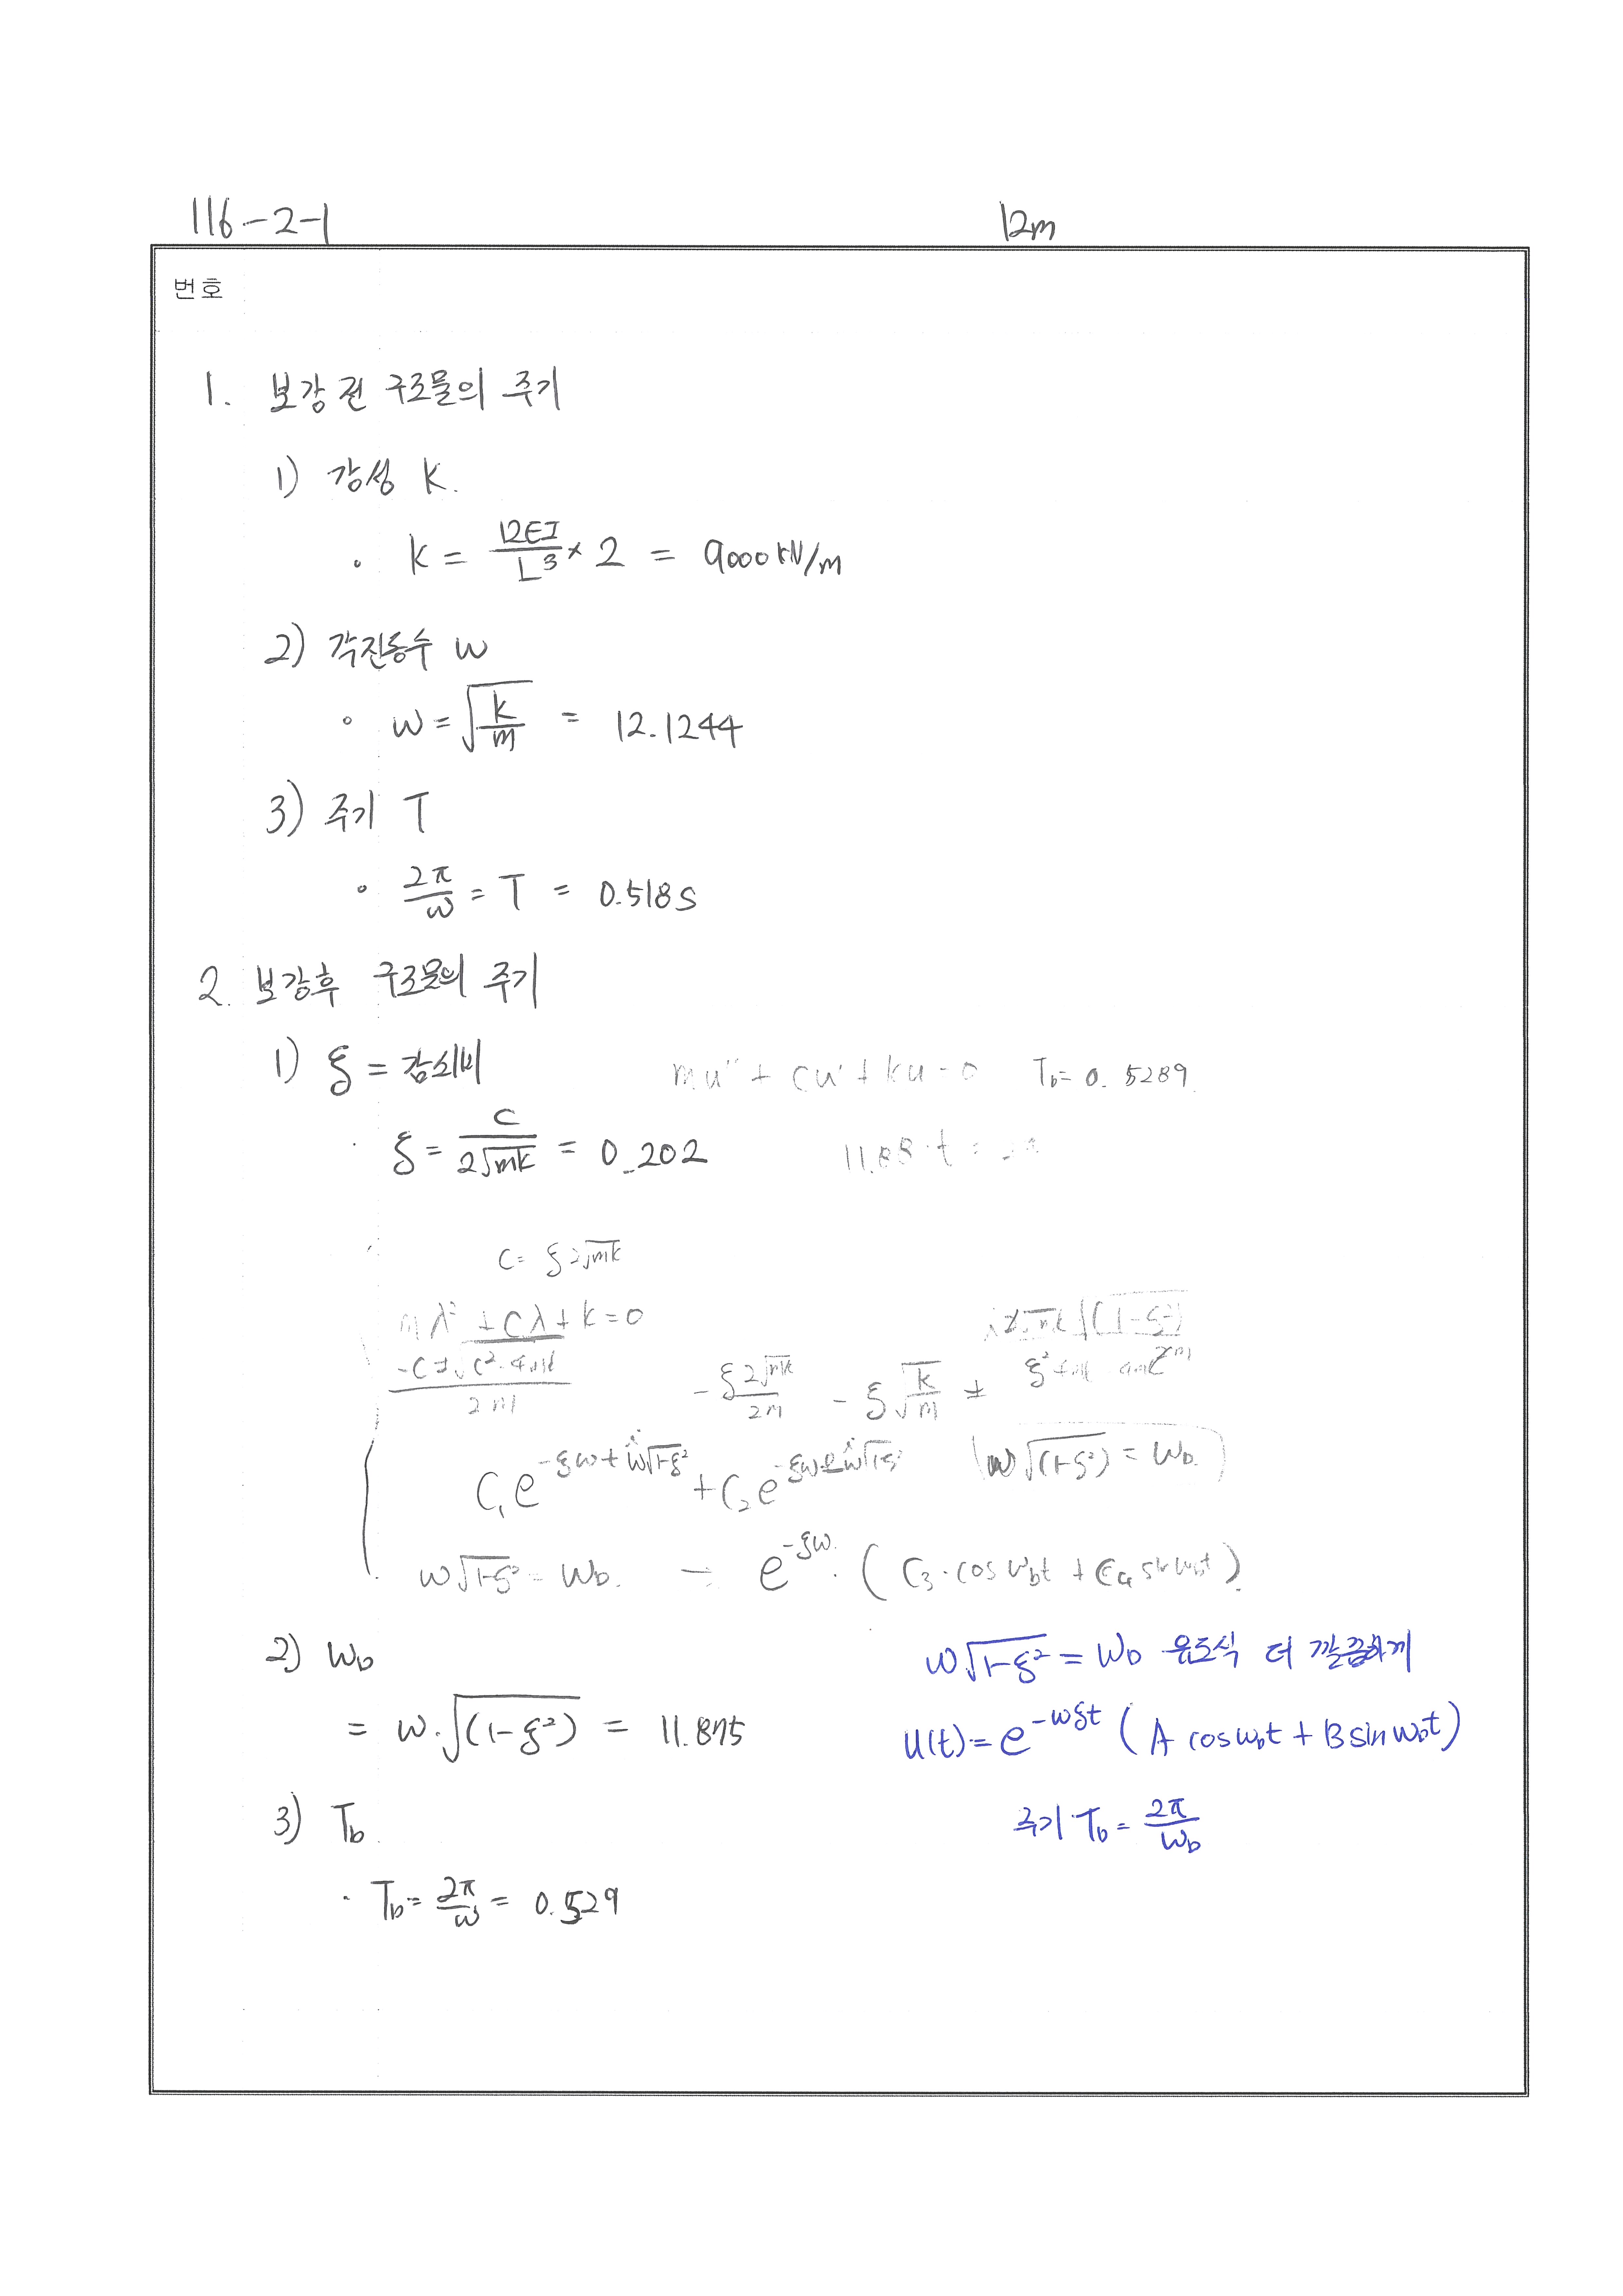 116-2-1 12m
번호
1. 보강 전 구조물의 주기
1) 강성 k.
• k = 12EI/L³ × 2 = 9000kN/m
2) 각진동수 ω
• ω = √(k/m) = 12.1244
3) 주기 T
• 2π/ω = T = 0.518s
2. 보강후 구조물의 주기
1) ξ = 감쇠비 mu'' + cu' + ku = 0 T_D = 0.5289
· ξ = c/(2√mk) = 0.202 11.88 t =
c = ξ2√mk
mλ² + cλ + k = 0
-c ± √(c²-4mk) / 2m - ξ2√mk / 2m - ξ√(k/m) ±
C₁e^(-ξω + iω√1-ξ²) + C₂e (ω√(1-ξ²) = ω_D)
ω√1-ξ² = ω_D. → e^(-ξω) · (C₃·cos ω_D t + C₄ sin ω_D t)
2) ω_D ω√1-ξ² = ω_D 유도식 더 깔끔하게
= ω·√(1-ξ²) = 11.875 u(t) = e^(-ωξt) (A cosω_D t + B sin ω_D t)
3) T_D. 주기 T_D = 2π/ω_D
· T_D = 2π/ω = 0.529